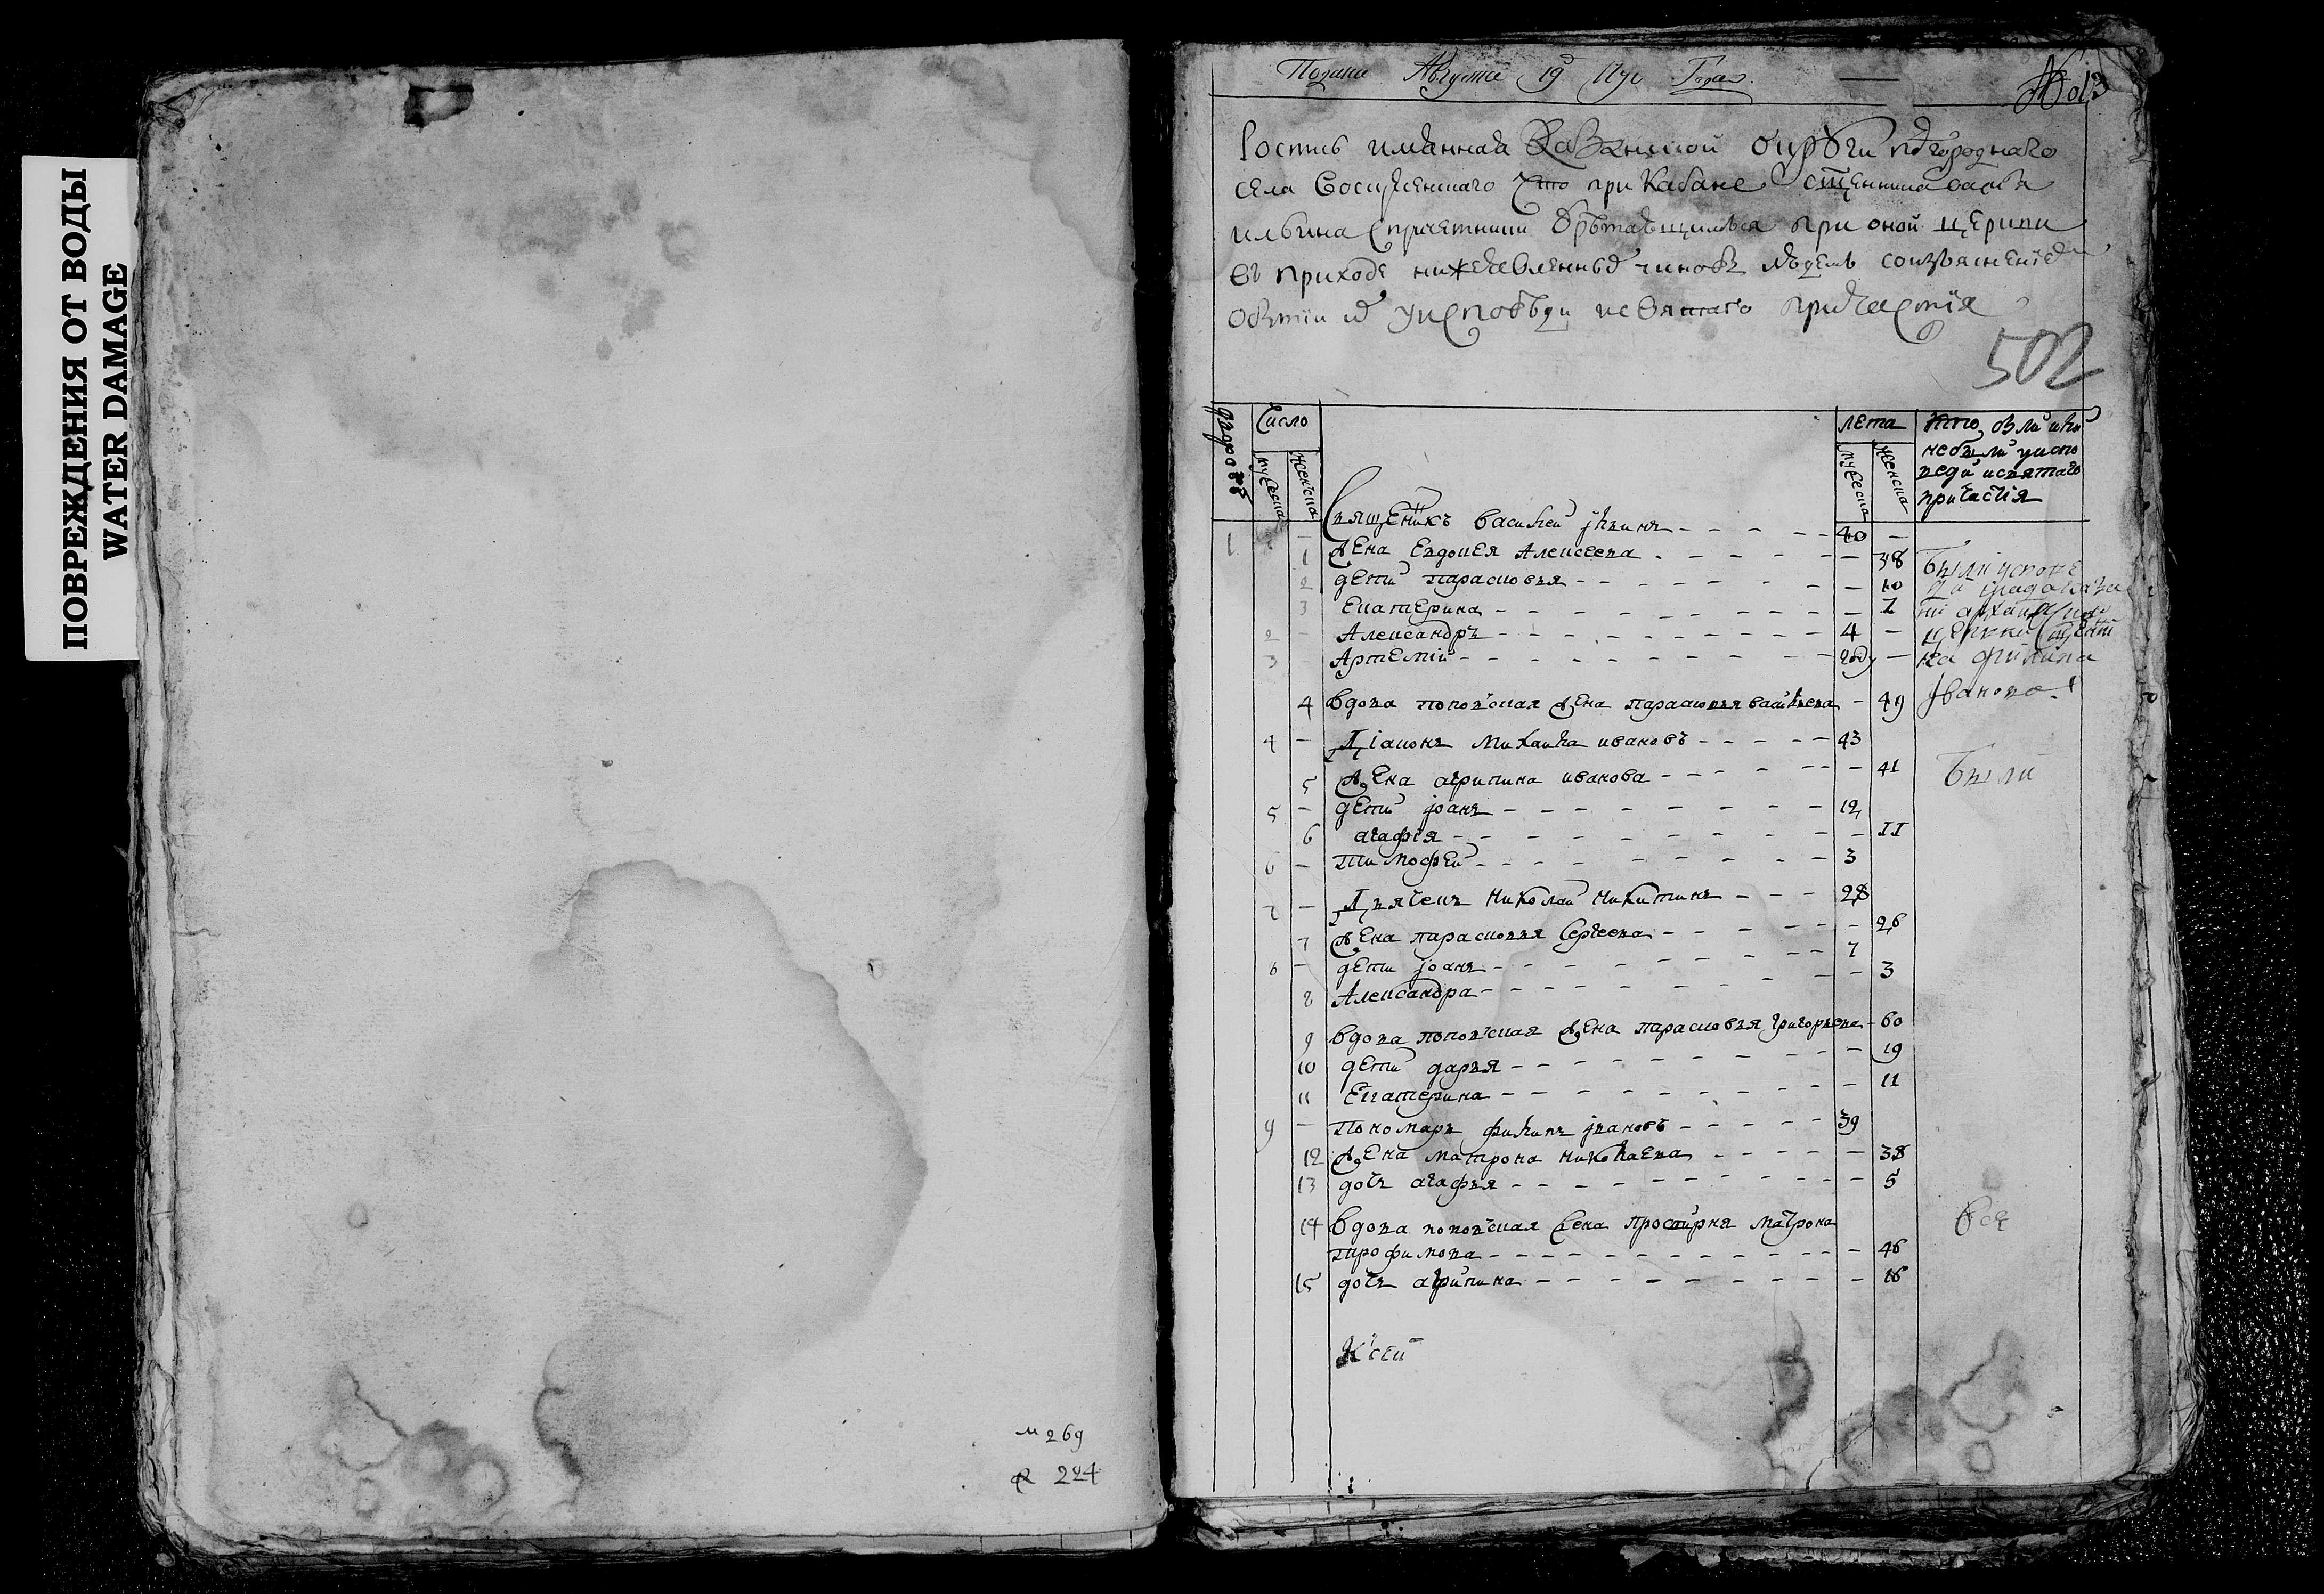 ПОВРЕЖДЕНИЯ ОТ ВОДЫ
WATER DAMAGE
м 269
224
Августа 19 Года
№ 013
Роспись имянная Казанской округи подгороднаго
села Воскресенскаго что при Кабане священника Василья
Ильина с причетники обретающимися при оной церкви
въ приходе нижеявленныхъ чиновъ людемъ со изъяснениемъ
о бытии ихъ у исповеди и святаго причастия
502
дворовъ
Число
мужеска
женска
лета
мужеска
женска
кто был или
не был у испо
веди и святаго
причастия
1 1 – Священникъ Василей Ильинъ 40 –
1 Жена Евдокея Алексеева – 38
2 дети Парасковья – 10
3 Екатерина – 7
2 – Александръ 4 –
3 Артемий 2 –
Были у
церкви
на Филипа
Иванова
4 вдова поповская жена Парасковья Васильева – 49
4 – Диаконъ Михаила Ивановъ 43
5 Жена Агрипина Иванова – 41
Были
5 – дети Иоанъ 12
6 Агафия – 11
6 – Тимофей 3
7 – Дьячекъ Николай Никитинъ 28
7 Жена Парасковья Сергеева – 26
8 – дети Иоанъ 7
8 Александра – 3
9 вдова поповская жена Парасковья Григорьева – 60
10 дети Дарья – 19
11 Екатерина – 11
9 – Пономарь Филипъ Ивановъ 39
12 Жена Матрона Николаева – 38
13 дочь Агафья – 5
14 вдова поповская жена просвирня Матрона
Трофимова – 46
15 дочь Агрипина – 16
Все